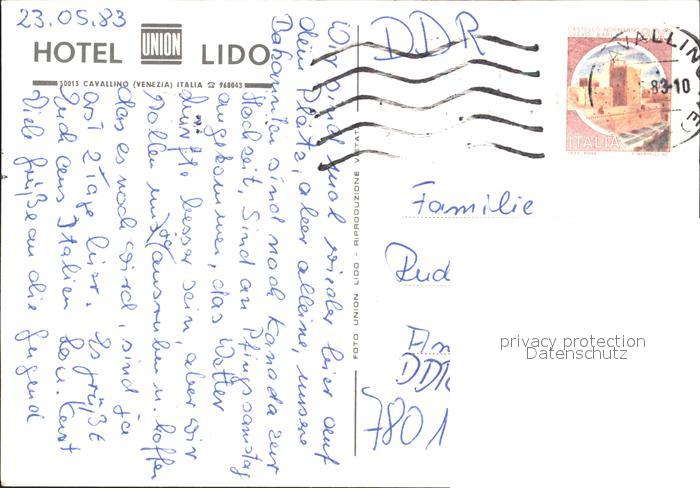 23.05.83
HOTEL UNION LIDO
50013 CAVALLINO (VENEZIA) ITALIA ☎ 968043
Wir sind mal wieder hier auf
dem Platz, aber alleine, unsere
sind nach Kanada zur
Hochzeit. Sind am Pfingssamstag
angekommen, das Wetter
dürfte besser sein, aber wir
wollen uns ja ausruhen u. hoffen
das es noch wird, sind ja
erst 2 Tage hier. Es grüßt
Euch aus Italien
Viele Grüße an die Jugend
FOTO UNION LIDO - RIPRODUZIONE VIETATA
DDR
CAVALLIN
83-10
ITALIA
Familie
Rud
An
DDR
7801
privacy protection
Datenschutz